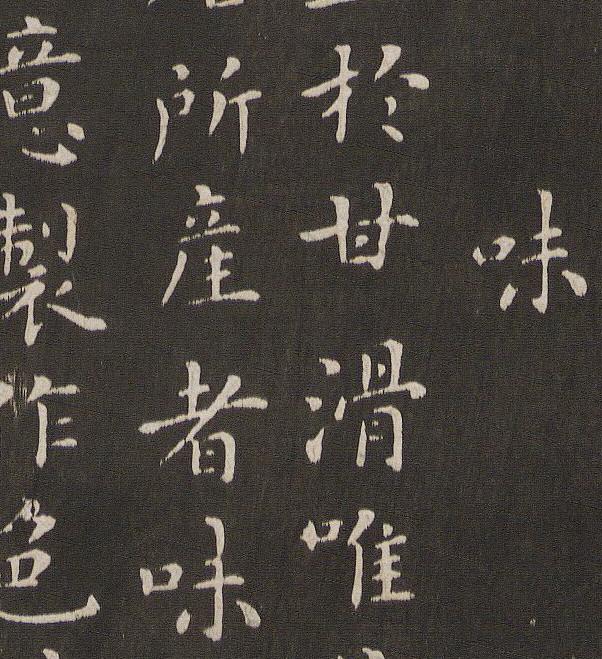 味
於甘滑唯
所産者味
意製作色